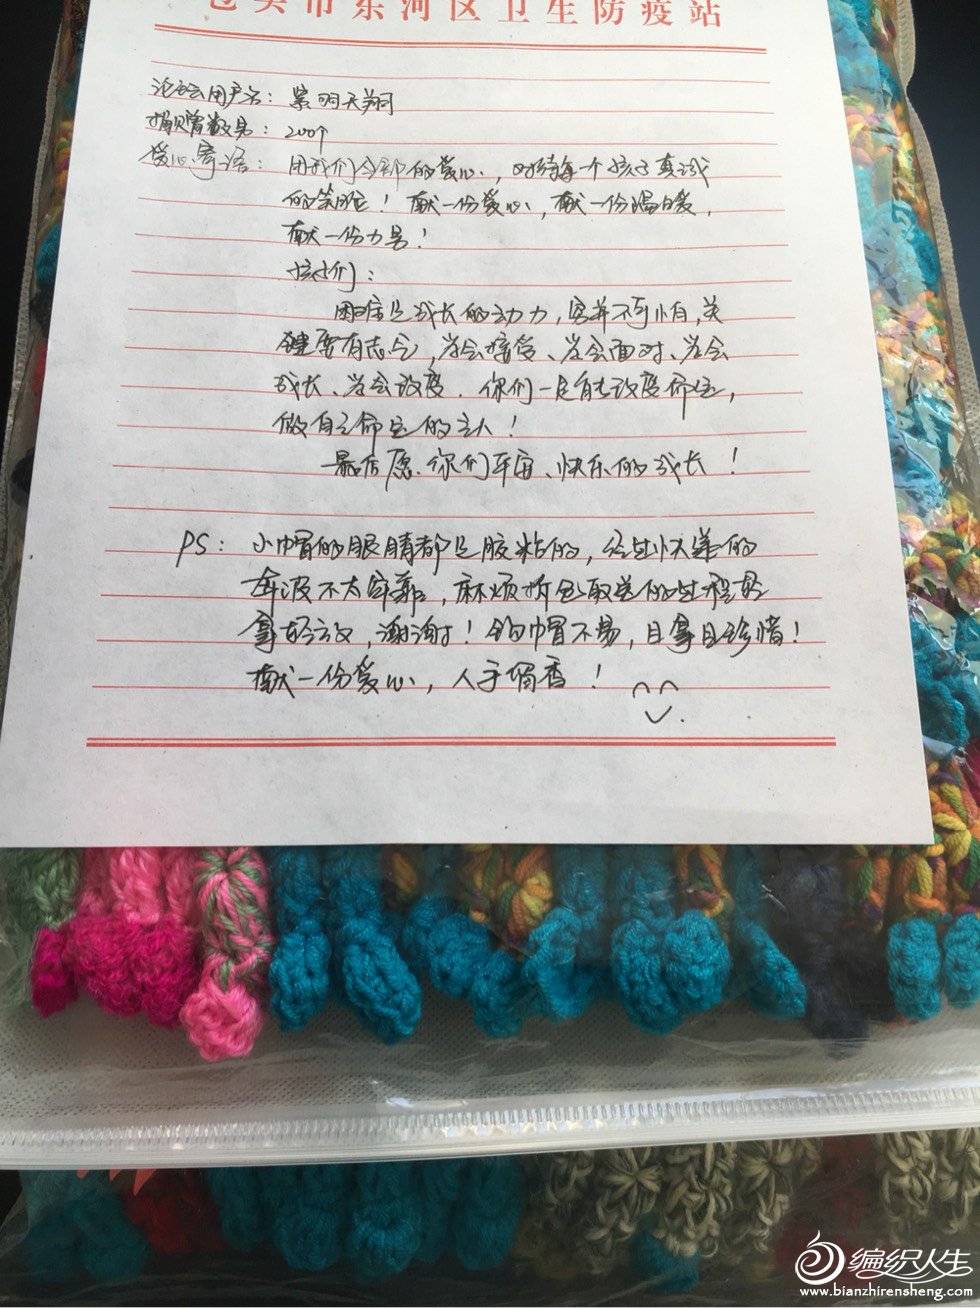 包头市东河区卫生防疫站
论坛用户名：紫明天翔
捐赠数量：200个
爱心寄语：用我们全部的爱心，对待每一个孩子真诚
的笑脸！献一份爱心，献一份温暖，
献一份力量！
孩子们：
困难是成长的动力，贫并不可怕，关
键要有志气，学会接受、学会面对、学会
成长、学会改变．你们一定能改变命运，
做自己命运的主人！
最后愿你们平安、快乐的成长！
PS：小帽的眼睛都是胶粘的，经过快递的
奔波不太牢靠，麻烦拆包取送的过程轻
拿轻放，谢谢！钩帽不易，且拿且珍惜！
献一份爱心，人手留香！
编织人生
www.bianzhirensheng.com